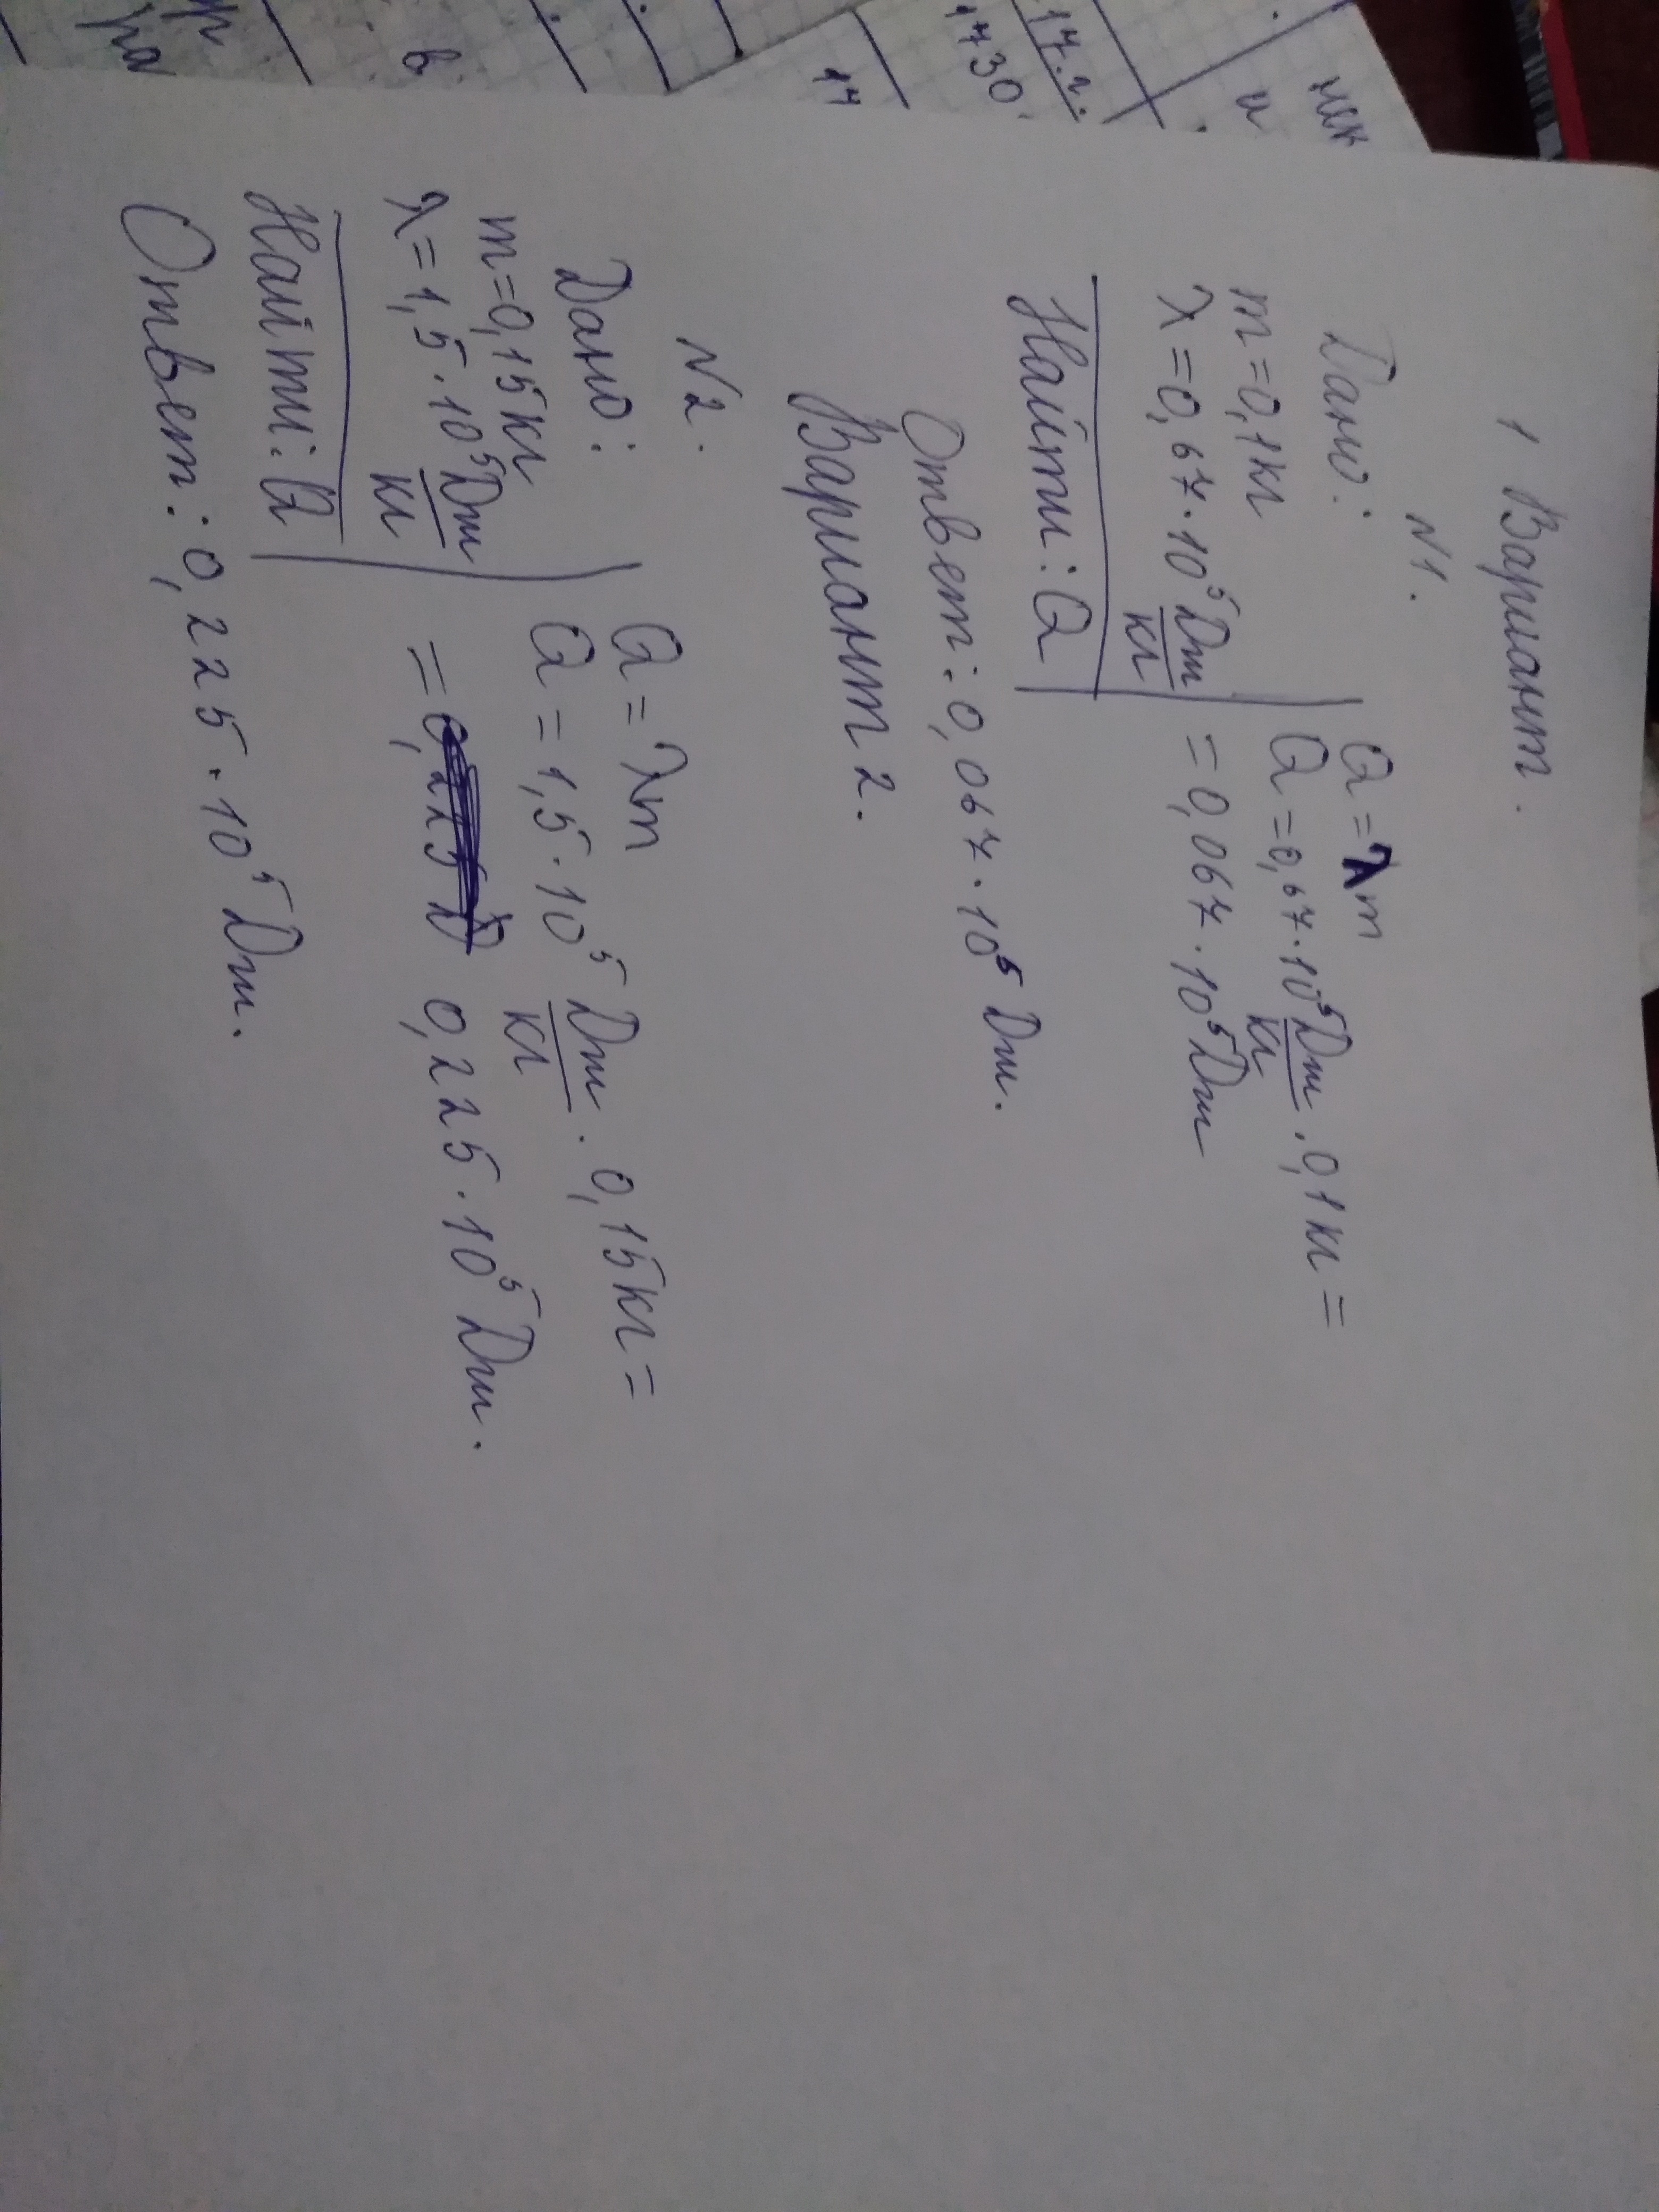 1 Вариант.
№1.
Дано:
m=0,1кг
λ=0,67·10⁵ Дж/кг
Найти: Q
Q=λm
Q=0,67·10⁵ Дж/кг · 0,1кг=
=0,067·10⁵ Дж
Ответ: 0,067·10⁵ Дж.
Вариант 2.
№2.
Дано:
m=0,15кг
λ=1,5·10⁵ Дж/кг
Найти: Q
Q=λm
Q=1,5·10⁵ Дж/кг · 0,15кг=
= 0,225·10⁵ Дж.
Ответ: 0,225·10⁵ Дж.
17.2.
1730.
17
в
и